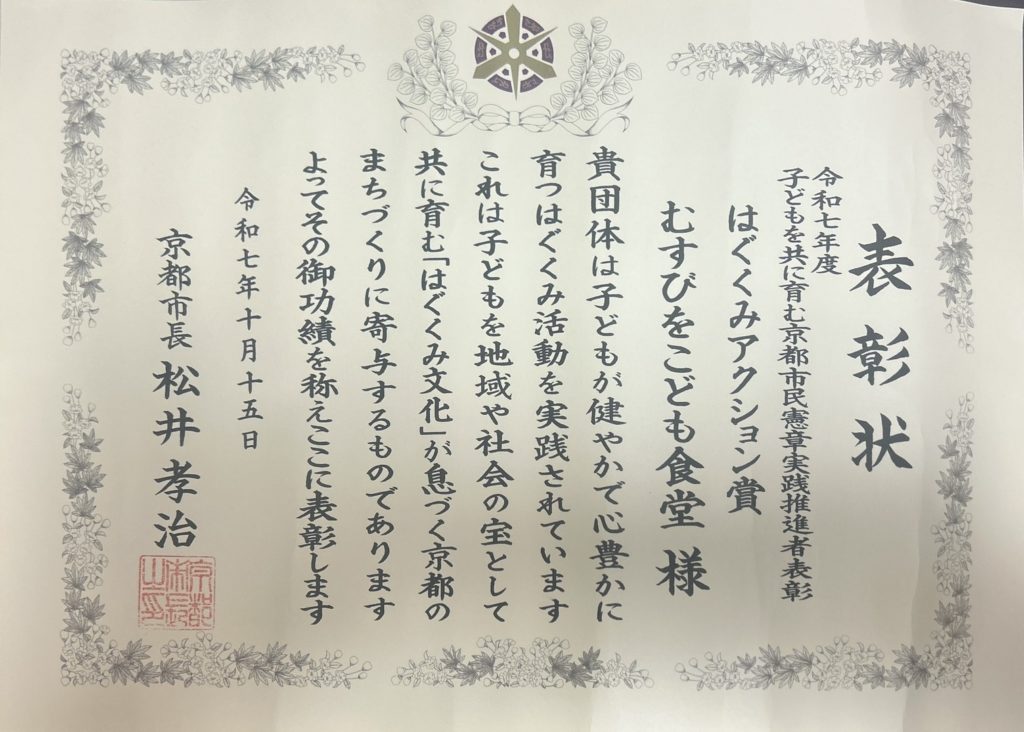 表彰状
令和七年度
子どもを共に育む京都市民憲章実践推進者表彰
はぐくみアクション賞
むすびをこども食堂 様
貴団体は子どもが健やかで心豊かに
育つはぐくみ活動を実践されています
これは子どもを地域や社会の宝として
共に育む「はぐくみ文化」が息づく京都の
まちづくりに寄与するものであります
よってその御功績を称えここに表彰します
令和七年十月十五日
京都市長 松井孝治
京都市長之印